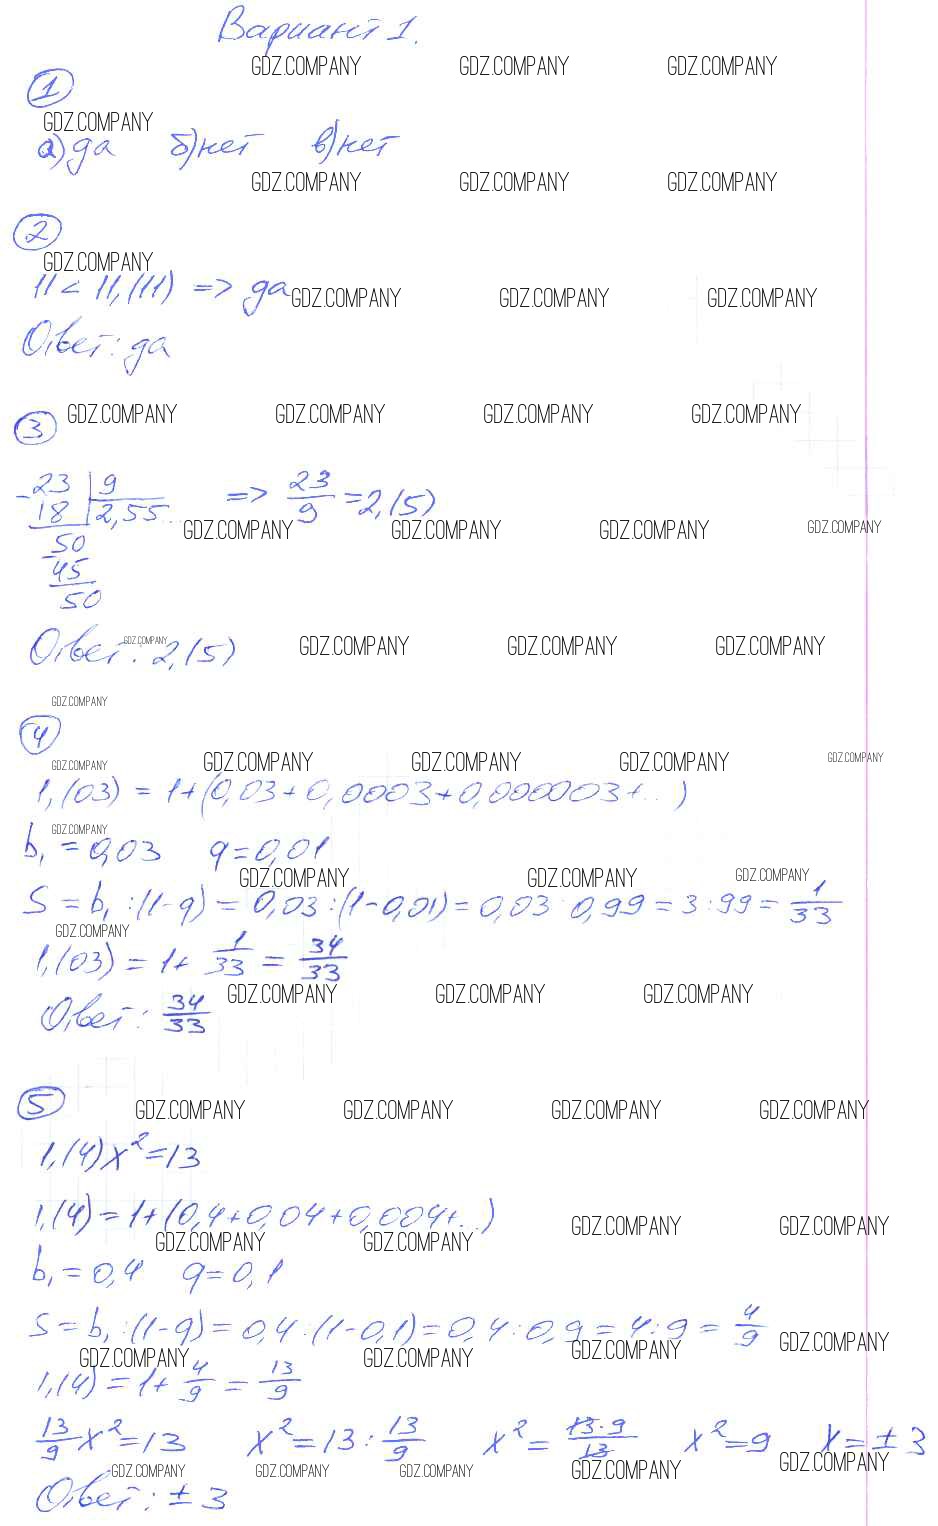 Вариант 1.
GDZ.COMPANY GDZ.COMPANY GDZ.COMPANY
1
GDZ.COMPANY
а) да б) нет в) нет
GDZ.COMPANY GDZ.COMPANY GDZ.COMPANY
2
GDZ.COMPANY
11 < 11,(11) => да
GDZ.COMPANY GDZ.COMPANY GDZ.COMPANY
Ответ: да
GDZ.COMPANY GDZ.COMPANY GDZ.COMPANY GDZ.COMPANY
3
- 23 | 9 => 23/9 = 2,(5)
18 | 2,55...
GDZ.COMPANY GDZ.COMPANY GDZ.COMPANY GDZ.COMPANY
- 50
45
50
GDZ.COMPANY GDZ.COMPANY GDZ.COMPANY GDZ.COMPANY
Ответ: 2,(5)
GDZ.COMPANY
4
GDZ.COMPANY GDZ.COMPANY GDZ.COMPANY GDZ.COMPANY GDZ.COMPANY
1,(03) = 1+(0,03+0,0003+0,000003+...)
GDZ.COMPANY
b₁ = 0,03 q = 0,01
GDZ.COMPANY GDZ.COMPANY GDZ.COMPANY
S = b₁ :(1-q) = 0,03:(1-0,01) = 0,03:0,99 = 3:99 = 1/33
GDZ.COMPANY
1,(03) = 1+ 1/33 = 34/33
GDZ.COMPANY GDZ.COMPANY GDZ.COMPANY
Ответ: 34/33
5
GDZ.COMPANY GDZ.COMPANY GDZ.COMPANY GDZ.COMPANY
1,(4)x²=13
1,(4)=1+(0,4+0,04+0,004+...)
GDZ.COMPANY GDZ.COMPANY GDZ.COMPANY GDZ.COMPANY
b₁=0,4 q=0,1
S=b₁:(1-q)=0,4:(1-0,1)=0,4:0,9=4:9= 4/9
GDZ.COMPANY GDZ.COMPANY GDZ.COMPANY GDZ.COMPANY
1,(4)=1+ 4/9 = 13/9
13/9 x²=13 x²=13: 13/9 x²= 13·9/13 x²=9 x=±3
GDZ.COMPANY GDZ.COMPANY GDZ.COMPANY GDZ.COMPANY GDZ.COMPANY
Ответ: ±3